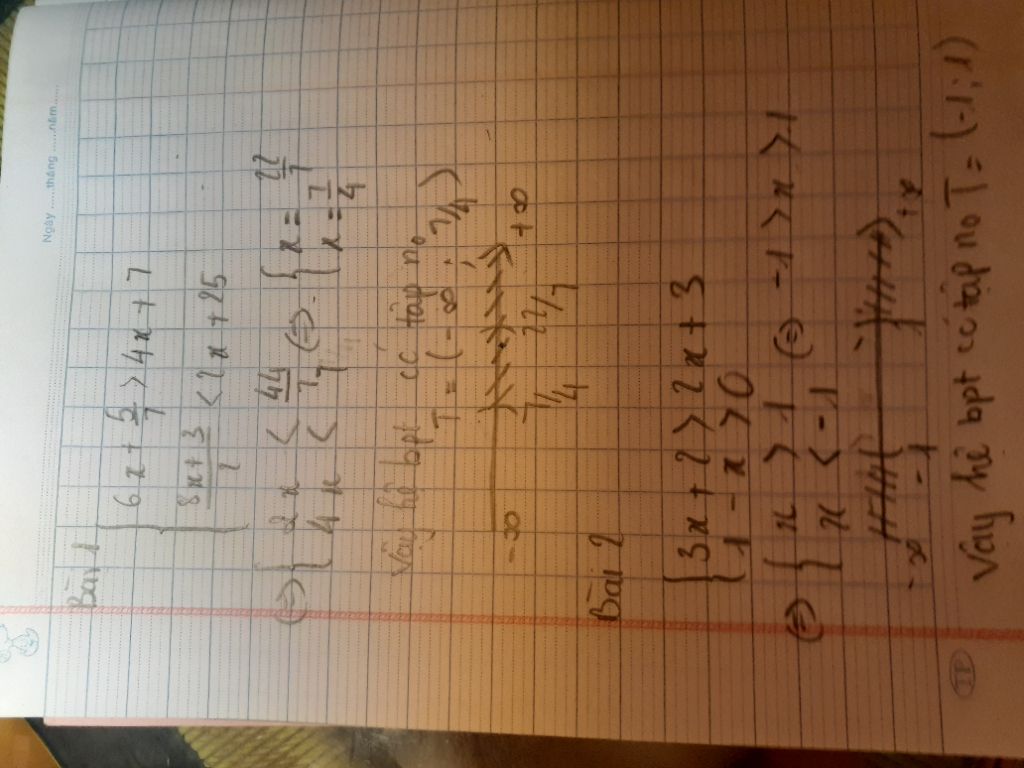 Ngày ......tháng ......năm......
Bài 1
{ 6x + 5/7 > 4x + 7
{ (8x + 3)/2 < 2x + 25
(=) { 2x < 44/7 (=) { x = 22/7
{ 4x < 7 { x = 7/4
Vậy hệ bpt có tập no
T = (-∞; 7/4)
-∞ 7/4 22/7 +∞
Bài 2
{ 3x + 2 > 2x + 3
{ 1 - x > 0
(=) { x > 1 (=) -1 > x > 1
{ x < -1
-∞ -1 1 +∞
Vậy hệ bpt có tập no T = (-1; 1)